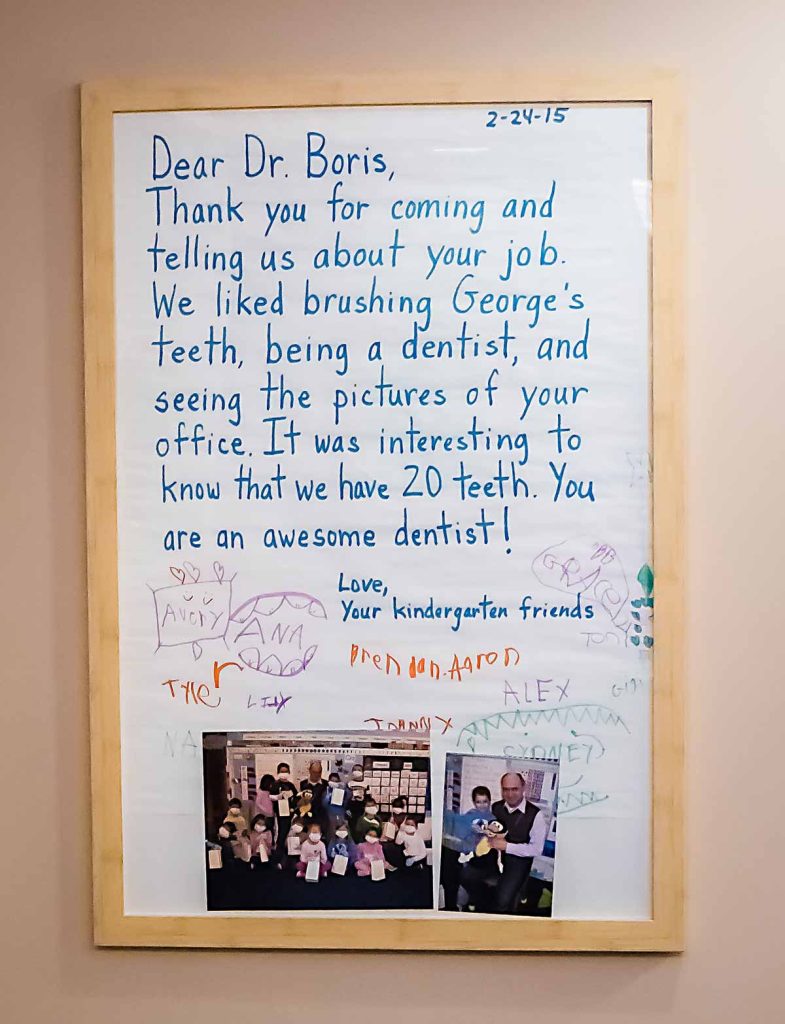 2-24-15
Dear Dr. Boris,
Thank you for coming and
telling us about your job.
We liked brushing George's
teeth, being a dentist, and
seeing the pictures of your
office. It was interesting to
know that we have 20 teeth. You
are an awesome dentist!
Love,
Your kindergarten friends
GRACE
AVERY
ANA
Brendan. Aaron
Tyler
LILY
ALEX
NA
SYDNEY